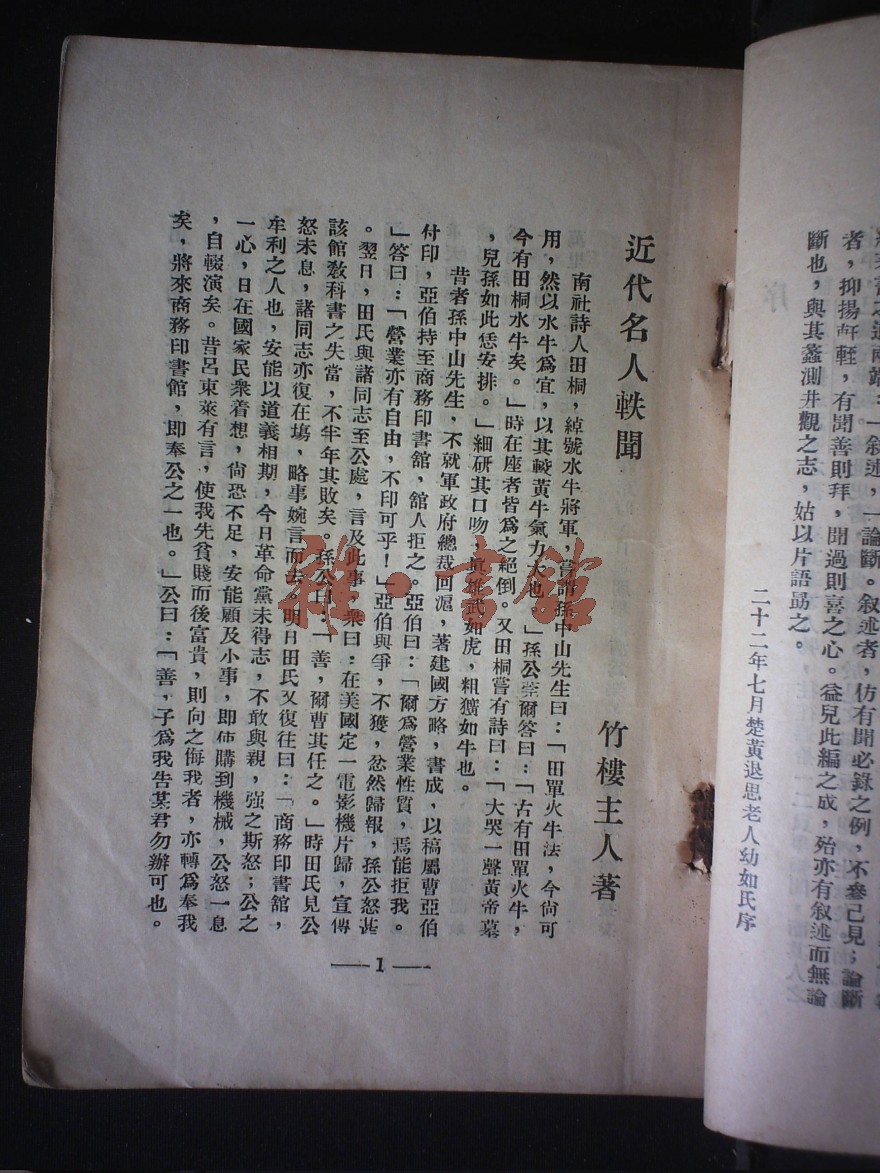 斷也，與其蠡測井觀之志，姑以片語勗之。
二十二年七月楚黃退思老人幼如氏序
近代名人軼聞
竹樓主人著
南社詩人田桐，綽號水牛將軍，嘗謂孫中山先生曰：「田單火牛法，今尙可
用，然以水牛爲宜，以其較黃牛氣力大也。」孫公莞爾答曰：「古有田單火牛，
今有田桐水牛矣。」時在座者皆爲之絕倒。又田桐嘗有詩曰：「大哭一聲黃帝墓
，兒孫如此恁安排。」細研其口吻，眞雄武如虎，粗獷如牛也。
昔者孫中山先生，不就軍政府總裁回滬，著建國方略，書成，以稿屬曹亞伯
付印，亞伯持至商務印書館，館人拒之。亞伯曰：「爾爲營業性質，焉能拒我。
」答曰：「營業亦有自由，不印可乎！」亞伯與爭，不獲，忿然歸報，孫公怒甚
。翌日，田氏與諸同志至公處，言及此事，衆曰：在美國定一電影機片歸，宣傳
該館敎科書之失當，不半年其敗矣。孫公曰：「善，爾曹其任之。」時田氏見公
怒未息，諸同志亦復在塲，略事婉言而去，明日田氏又復往曰：「商務印書館，
牟利之人也，安能以道義相期，今日革命黨未得志，不敢與親，强之斯怒；公之
一心，日在國家民衆着想，尙恐不足，安能顧及小事，即使購到機械，公怒一息
，自輟演矣。昔呂東萊有言，使我先貧賤而後富貴，則向之侮我者，亦轉爲奉我
矣，將來商務印書館，即奉公之一也。」公曰：「善，子爲我告某君勿辦可也。
—1—
者，抑揚軒輊，有聞善則拜，聞過則喜之心。益兒此編之成，殆亦有叙述而無論
一叙述，一論斷。叙述者，仿有聞必錄之例，不參己見；論斷
雅·書館